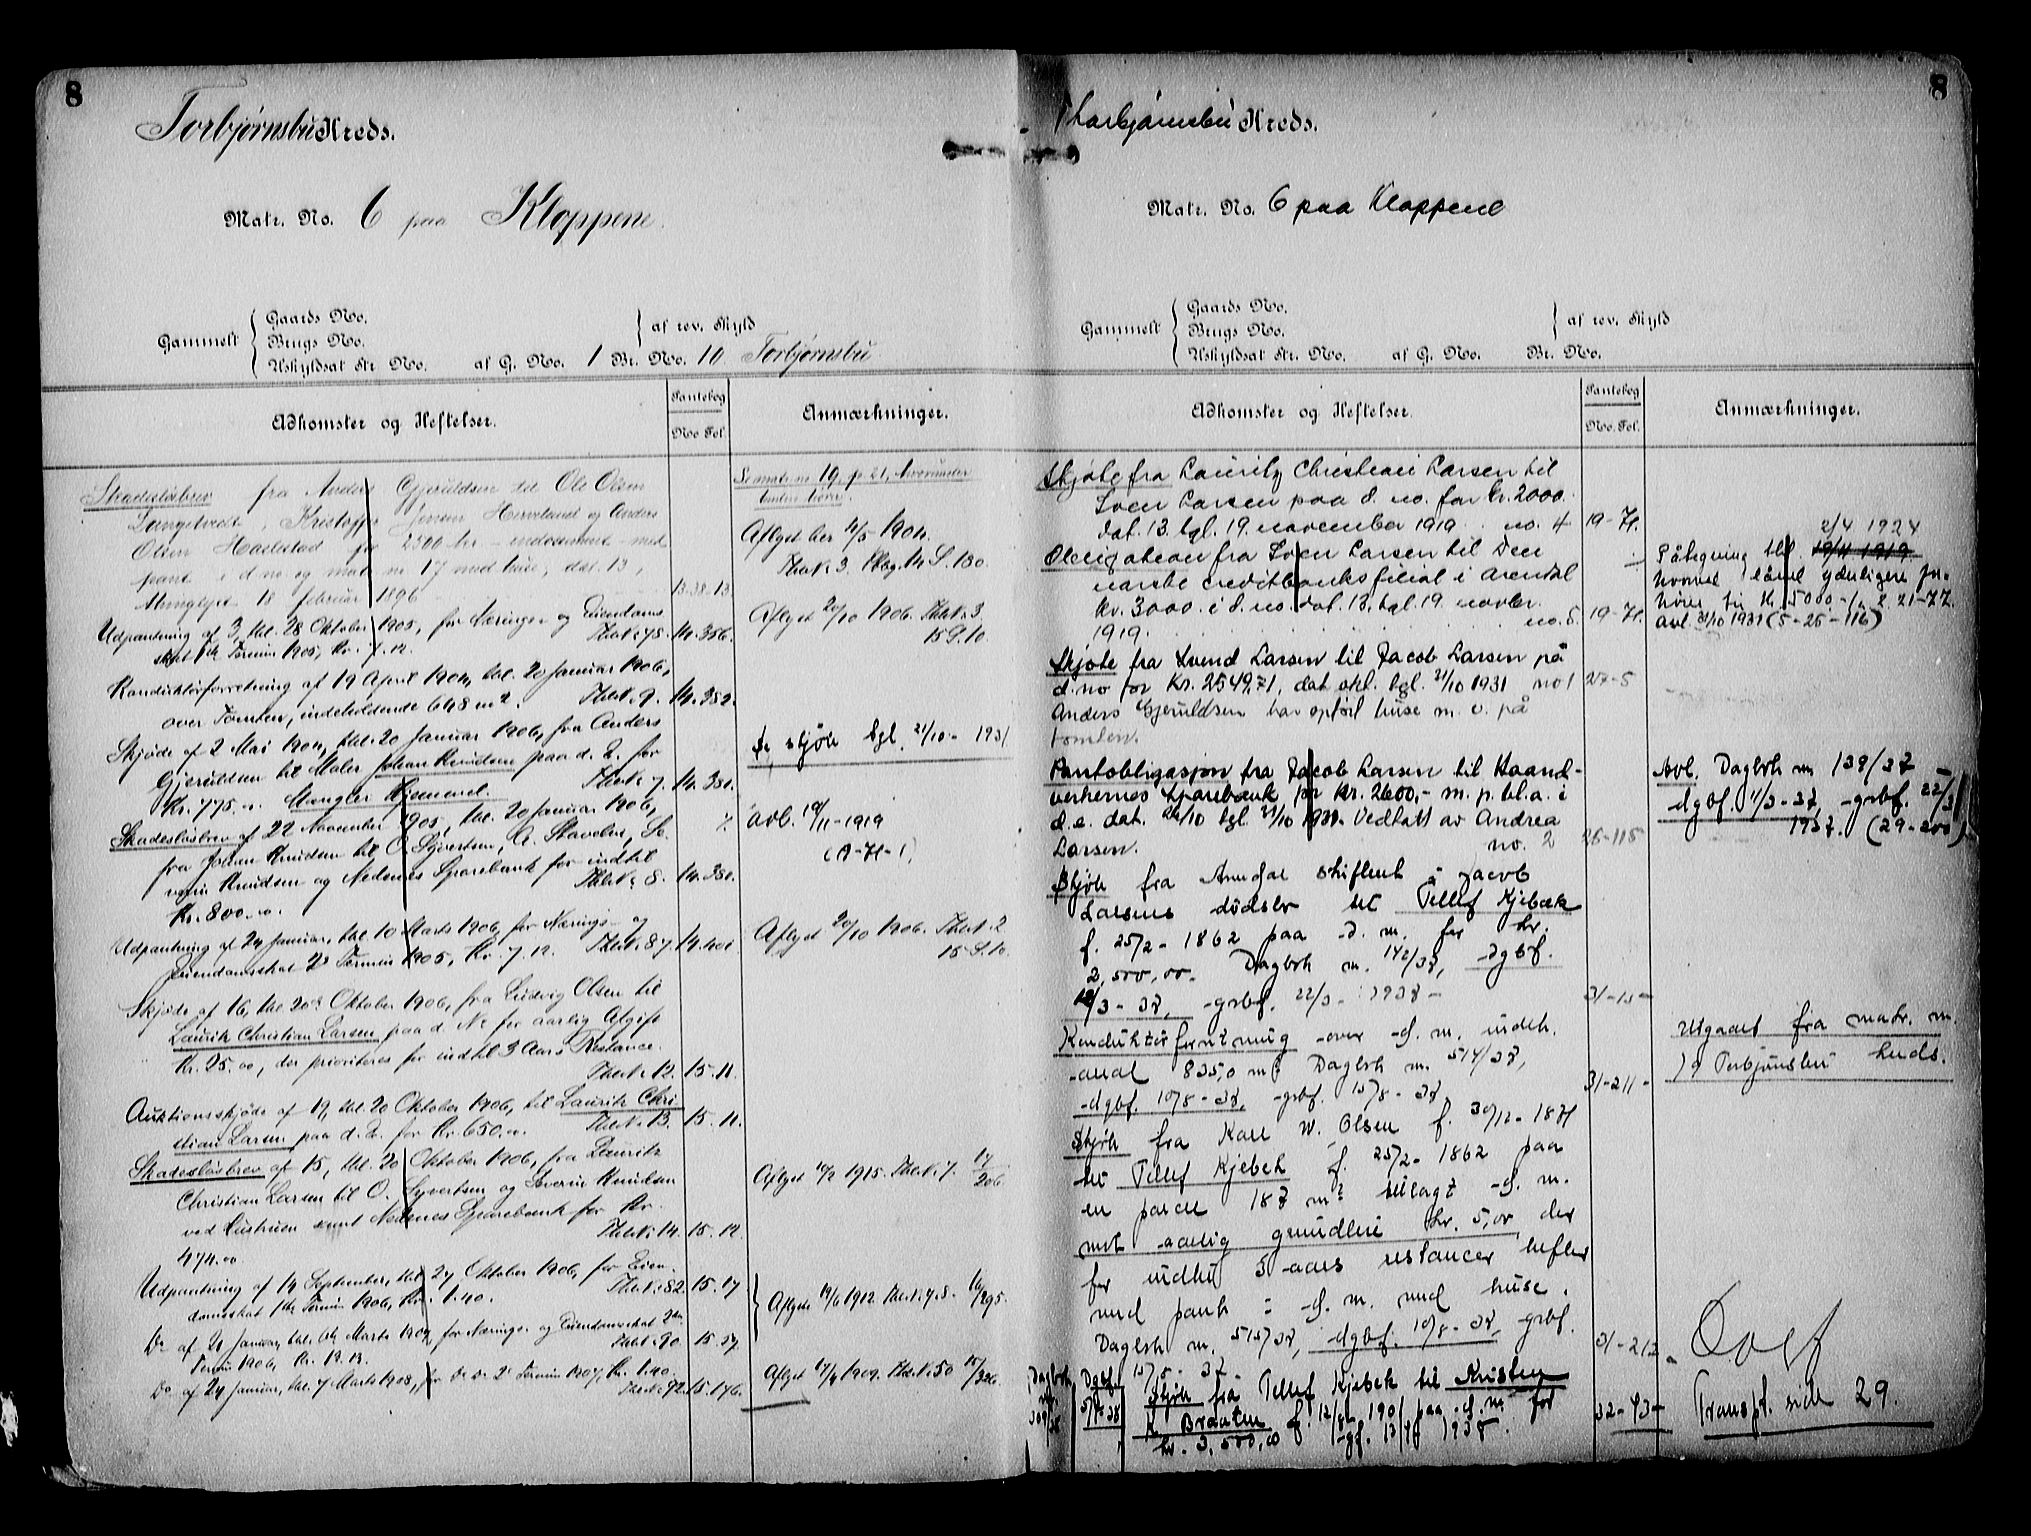 8
Torbjørnsbu Kreds.
Matr. No. 6 paa Kloppene.
Gaards No.
Gammelt Brugs No. af rev. Skyld
Uskyldsat Str. No. af G. No. 1 Br. No. 10 Torbjørnsbu
Adkomster og Heftelser.
Pantebog
No. Fol.
Anmærkninger.
Skadesløsbrev fra Anders Gjeruldsen til Ole Olsen
Kristoffer Jensen og Anders
Olsen 2500 kr
pant i d. no og matr. nr 17 med huse, dat. 13,
thinglyst 18 februar 1896 13.38.13.
Se matr. nr 19 p 21,
Aflyst her 11/5 1904.
Thlet № 3. Pbog. 14 S. 130.
Udpantning af 3, thl. 28 Oktober 1905, for Nærings- og Eiendoms-
skat 1ste Termin 1905, Kr. 7.12. Thlet № 75. 14.356.
Aflyst 20/10 1906. Thlet № 3
15 S. 10.
Konduktørforretning af 19 April 1904, thl. 20 Januar 1906,
over Tomten, indeholdende 648 m². Thlet № 9. 14.382.
Skjøde af 2 Mai 1904, thl. 20 Januar 1906, fra Anders
Gjeruldsen til Maler Johan Knudsen paa d. E. for
Kr. 775.00. Mangler Hjemmel. Thlet № 7. 14.380.
Se skjøte tgl. 21/10 - 1931
Skadesløsbrev af 22 November 1905, thl. 20 Januar 1906,
fra Johan Knudsen til O. Syvertsen, A. Slavelse, Se-
verin Knudsen og Nedenes Sparebank for indtil
Kr. 800.00. Thlet № 8. 14.380.
avl. 19/11-1919
(A-71-1)
Udpantning af 24 Januar, thl. 10 Marts 1906, for Nærings- og
Eiendomsskat 2den Termin 1905, Kr. 7.12. Thlet № 87. 14.401
Aflyst 20/10 1906. Thlet № 2
15-S.10.
Skjøde af 16, thl 20de Oktober 1906, fra Ludvig Olsen til
Lauritz Christian Larsen paa d. No for aarlig Afgift
Kr. 25.00, der prioriteres for indtil 3 Aars Restance.
Thlet № 12. 15.11.
Auktionsskjøde af 19, thl. 20 Oktober 1906, til Lauritz Chri-
stian Larsen paa d. E. for Kr. 650.00. Thlet № 13. 15.11.
Skadesløsbrev af 15, thl. 20 Oktober 1906, fra Lauritz
Christian Larsen til O. Syvertsen og Severin Knudsen
ved Hustruen samt Nedenes Sparebank for Kr.
474.00. Thlet № 14. 15.12.
Aflyst 10/2 1915. Thlet № 7. 17/206.
Udpantning af 14 September, thl. 27 Oktober 1906, for Eien-
domsskat 1ste Termin 1906, Kr. 1.40. Thlet № 82. 15.17
Do af 21 Januar, thl. 6te Marts 1907, for Nærings- og Eiendomsskat 2den
Termin 1906, Kr. 13.13. Thlet № 90. 15.37.
Aflyst 14/6 1912. Thlet № 7.8. 16/295.
Do af 24 Januar, thl. 7 Marts 1908, for Do Do 2de Termin 1907, Kr. 1.40.
Thlet № 92. 15.176.
Aflyst 17/4 1909. Thlet № 50 15/326.
8
Thorbjørnsbu Kreds.
Matr. No. 6 paa Kloppene
Gaards No.
Gammelt Brugs No. af rev. Skyld
Uskyldsat Str. No. af G. No. Br. No.
Adkomster og Heftelser.
Pantebog
No. Fol.
Anmærkninger.
Skjøte fra Lauritz Christian Larsen til
Sven Larsen paa d. no. for kr. 2000.
dat. 13. tgl. 19. november 1919. no. 4 19-71.
Obligation fra Sven Larsen til Den
norske creditbanks filial i Arendal
kr. 3000. i d. no. dat. 13, tgl. 19. novbr.
1919. no. 5. 19-71.
2/4 1924
Påtegning tgl. 19/11 1919
hvorved lånet yderligere for-
høies til kr. 5000.- 21-77.
avl. 31/10 1931 (5-26-116)
Skjøte fra Svend Larsen til Jacob Larsen på
d. no for Kr. 2549,71, dat. okt. tgl. 21/10 1931 no 1 27-5
Anders Gjeruldsen har opført huse m. v. på
tomten.
Pantobligasjon fra Jacob Larsen til Haand-
verkernes Sparebank for Kr. 2600,- m. p. bl. a. i
d. e. dat. 24/10 tgl. 31/10 1931. Vedtatt av Andrea
Larsen. no. 2 26-115
Avl. Dagbok nr 139/37
dgbf. 11/3-37, -grbf. 22/3
1937. (29-200)
Skjøte fra Arendal skifterett i Jacob
Larsens dødsbo til Tellef Kjebæk
f. 25/2-1862 paa d. m. for kr.
2,500,00. Dagbok nr. 142/37, dgbf.
12/3-37, -grbf. 22/3-1938- 31-15-
Konduktørforretning over d. m. indeh.
areal 835,0 m² Dagbok nr. 514/37,
-dgbf. 10/8-37, -grbf. 15/8-37 31-211-
Utgaaet fra matr. nr.
19 Torbjørnsbu kreds.
Skjøte fra Karl W. Olsen f. 30/12-1871
til Tellef Kjebek f. 25/2-1862 paa
en parcel 187 m² tillagt d. m.
mot aarlig grundleie kr. 5,00 der
for indtil 3 aars restancer hefter
med pant i d. m. med huse.
Dagbok nr. 515/37, -dgbf. 10/8-37, grbf.
15/8-37- 31-213
Dagbok
nr.
309/38
Dgbf.
5/4-38
Skjøte fra Tellef Kjebek til Kristen
K. Braaten f. 12/8 1901 paa d. m. for
kr. 3,500,00 -gf. 13/4 1938. 32-43-
Transpf. side 29.